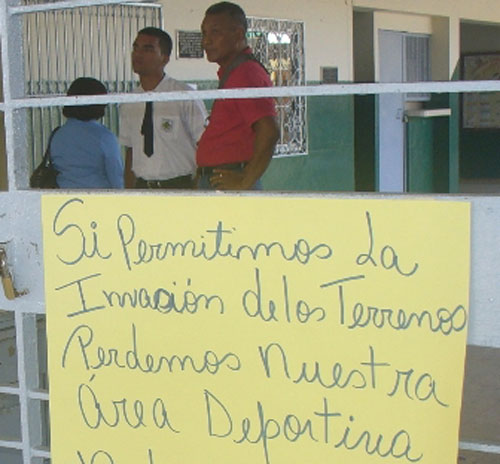 Si Permitimos La
Invación de los Terrenos
Perdemos Nuestra
Área Deportiva